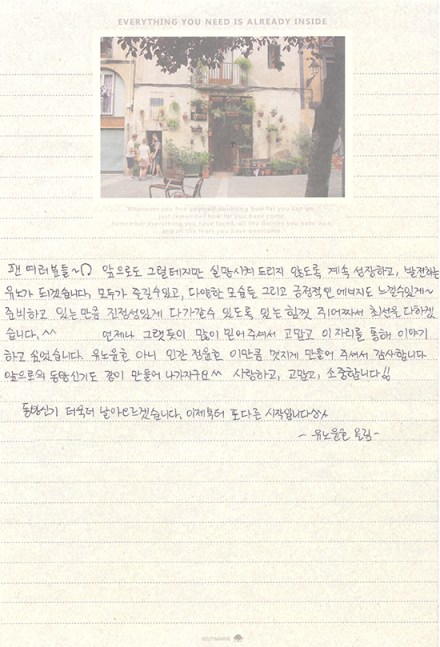 EVERYTHING YOU NEED IS ALREADY INSIDE
팬 여러분들~ 앞으로도 그럴테지만 실망시켜 드리지 않도록 계속 성장하고, 발전하는
유노가 되겠습니다, 모두가 즐길수있고, 다양한 모습들 그리고 긍정적인 에너지도 느낄수있게~
준비하고 있는만큼 진정성있게 다가갈수 있도록 있는 힘껏 쥐어짜서 최선을 다하겠
습니다. ^^ 언제나 그랬듯이 많이 믿어주셔서 고맙고 이 자리를 통해 이야기
하고 싶었습니다. 유노윤호 아니 인간 정윤호 이만큼 멋지게 만들어 주셔서 감사합니다
앞으로의 동방신기도 같이 만들어 나가자구요^^ 사랑하고, 고맙고, 소중합니다!!
동방신기 더욱더 날아오르겠습니다, 이제부터 또다른 시작입니다
- 유노윤호 올림 -